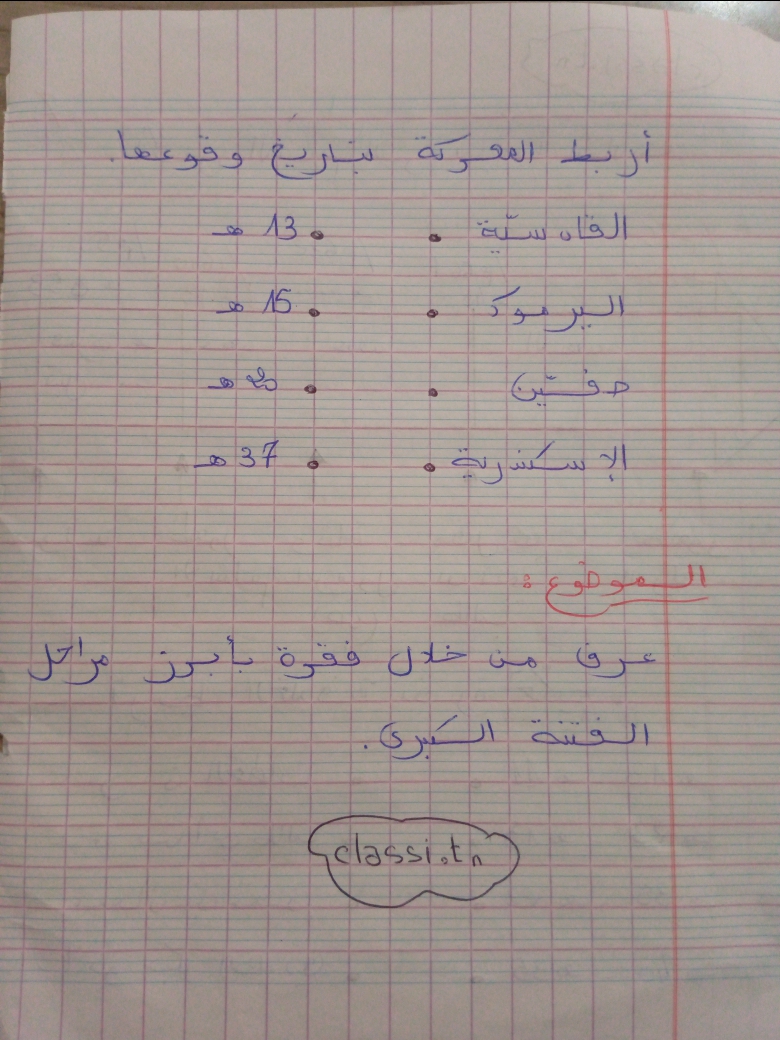 أربط المعركة بتاريخ وقوعها.
القادسيّة • • 13 هـ
اليرموك • • 15 هـ
صفّين • • 20 هـ
الإسكندرية • • 37 هـ
الموضوع:
عرف من خلال فقرة بأبرز مراحل
الفتنة الكبرى.
classi.tn